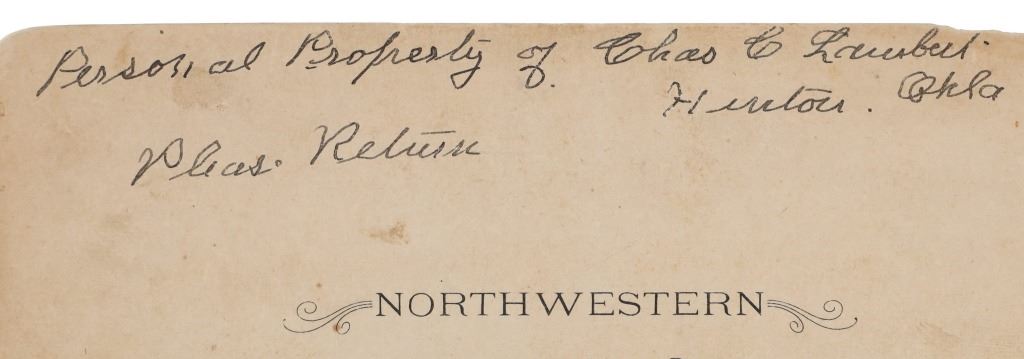 Personal Property of Chas C Lambert
Hinton. Okla
Pleas. Return
NORTHWESTERN